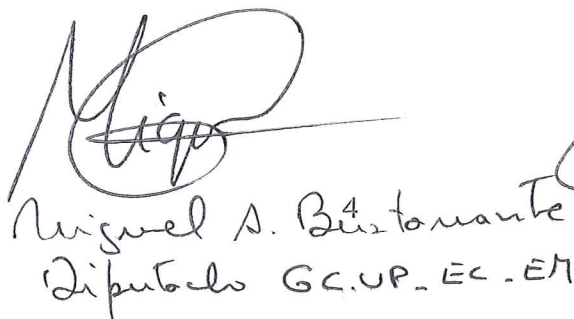 Miguel
Miguel A. Bustamante
4
Diputado GC.UP-EC-EM